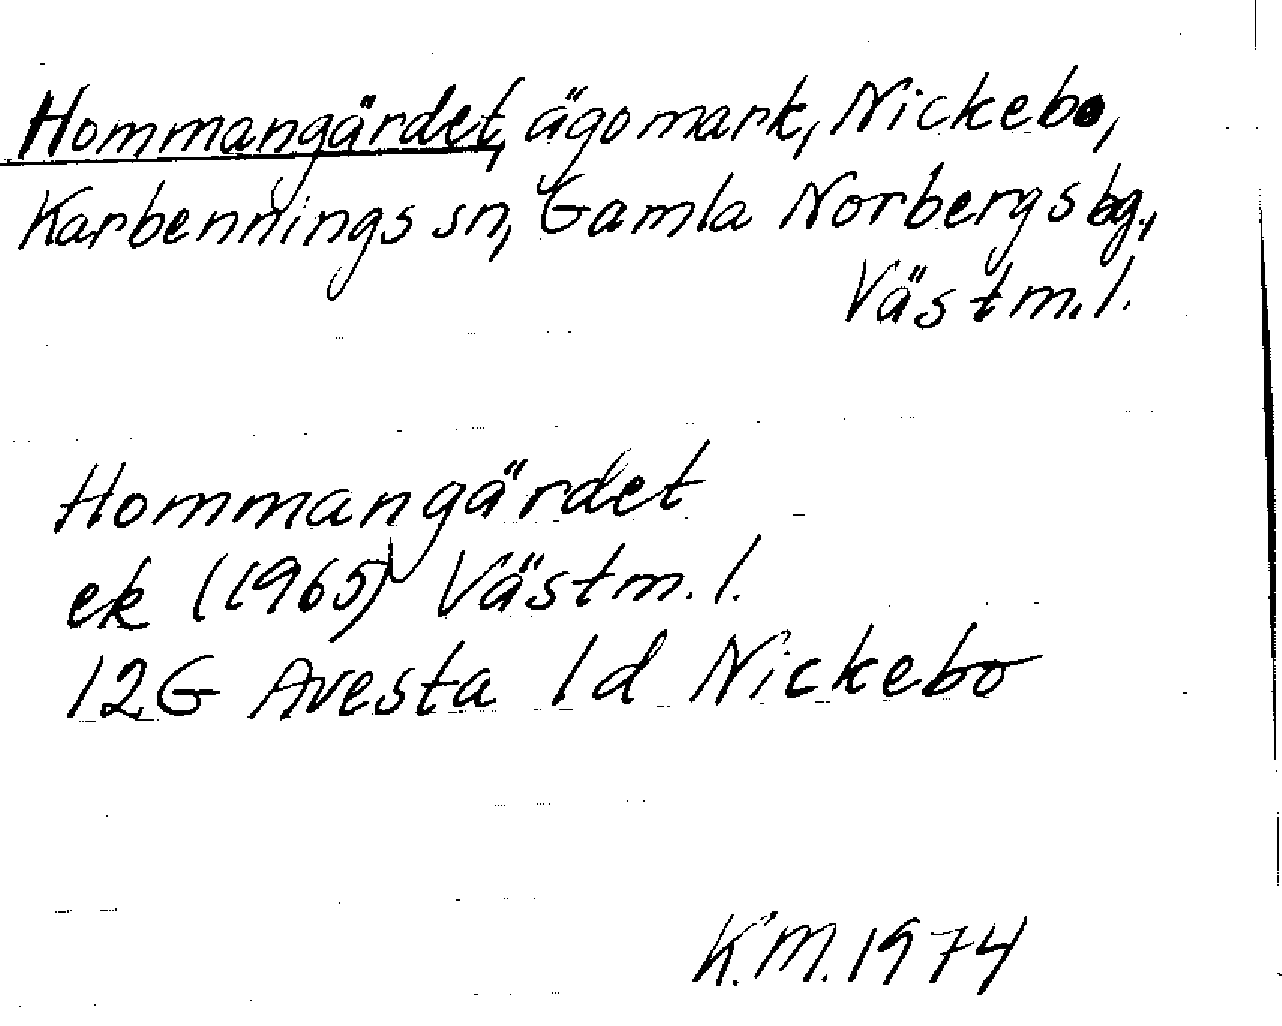 Hommangärdet, ägomark, Nickebo,
Karbennings sn, Gamla Norbergs bg.,
Västm.l.
Hommangärdet
ek (1965) Västm.l.
12G Avesta 1d Nickebo
K.M. 1974